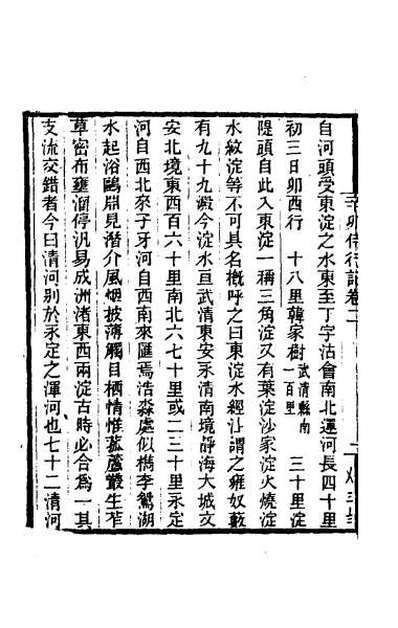 辛卯侍行記卷二
自河頭受東淀之水東至丁字沽會南北運河長四十里
初三日卯西行　十八里韓家樹武清縣南一百里　三十里淀
隄頭自此入東淀一稱三角淀又有葉淀沙家淀火燒淀
水紋淀等不可具名概呼之曰東淀水經注謂之雍奴藪
有九十九澱今淀水亘武清東安永清南境靜海大城文
安北境東西百六十里南北六七十里或二三十里永定
河自西北來子牙河自西南來匯焉浩淼處似檇李鴛湖
水起浴鷗淵見潛介風烟披薄觸目栖情惟菰蘆叢生苲
草密布壅溜停汎易成洲渚東西兩淀古時必合爲一其
支流交錯者今曰清河別於永定之渾河也七十二清河